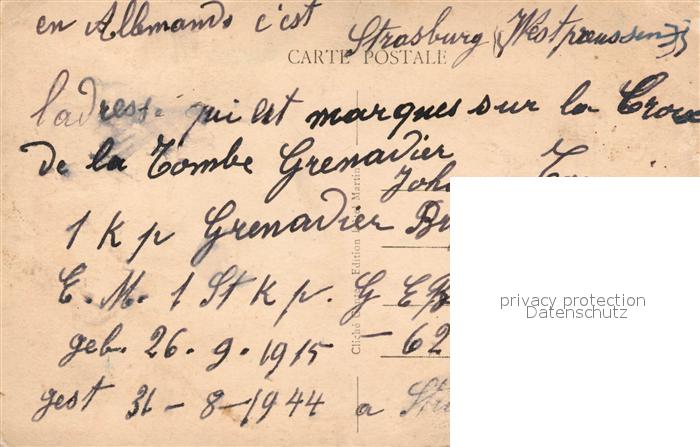 en Allemands c'est Strasburg (Westpreussen)
CARTE POSTALE
l'adresse qui est marques sur la Croix
de la Tombe Grenadier
Joh
1 K p Grenadier
E. M. 1 St K p. G E B
geb. 26. 9. 1915 – 62
gest 31 – 8 – 1944 a
Edition
Martin
Cliché
privacy protection
Datenschutz